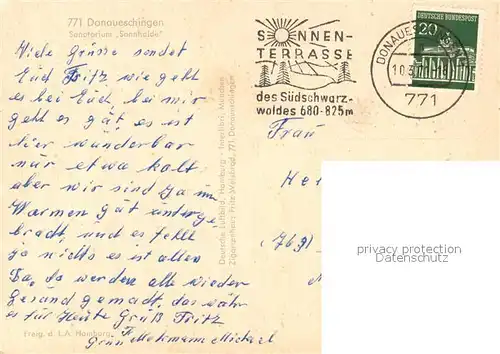 771 Donaueschingen
Sanatorium „Sonnhalde"
Viele Grüsse sendet
Euch Fritz wie geht
es bei Euch, bei mir
geht es gut, es ist
hier wunderbar
nur etwa kalt
aber wir sind ja im
Warmen gut unterge
bracht, und es fehlt
ja nichts es ist alles
Da, da werden alle wieder
Gesund gemacht, das wäre
es für Heute Gruß Fritz
Michael
Freig. d. L.A. Hamburg
Deutsche Luftbild, Hamburg
Zigarrenhaus Fritz Weisbrod, 771 Donaueschingen
SONNEN-
TERRASSE
des Südschwarz-
waldes 680-825m
DEUTSCHE BUNDESPOST
20
771
Frau
He
privacy protection
Datenschutz